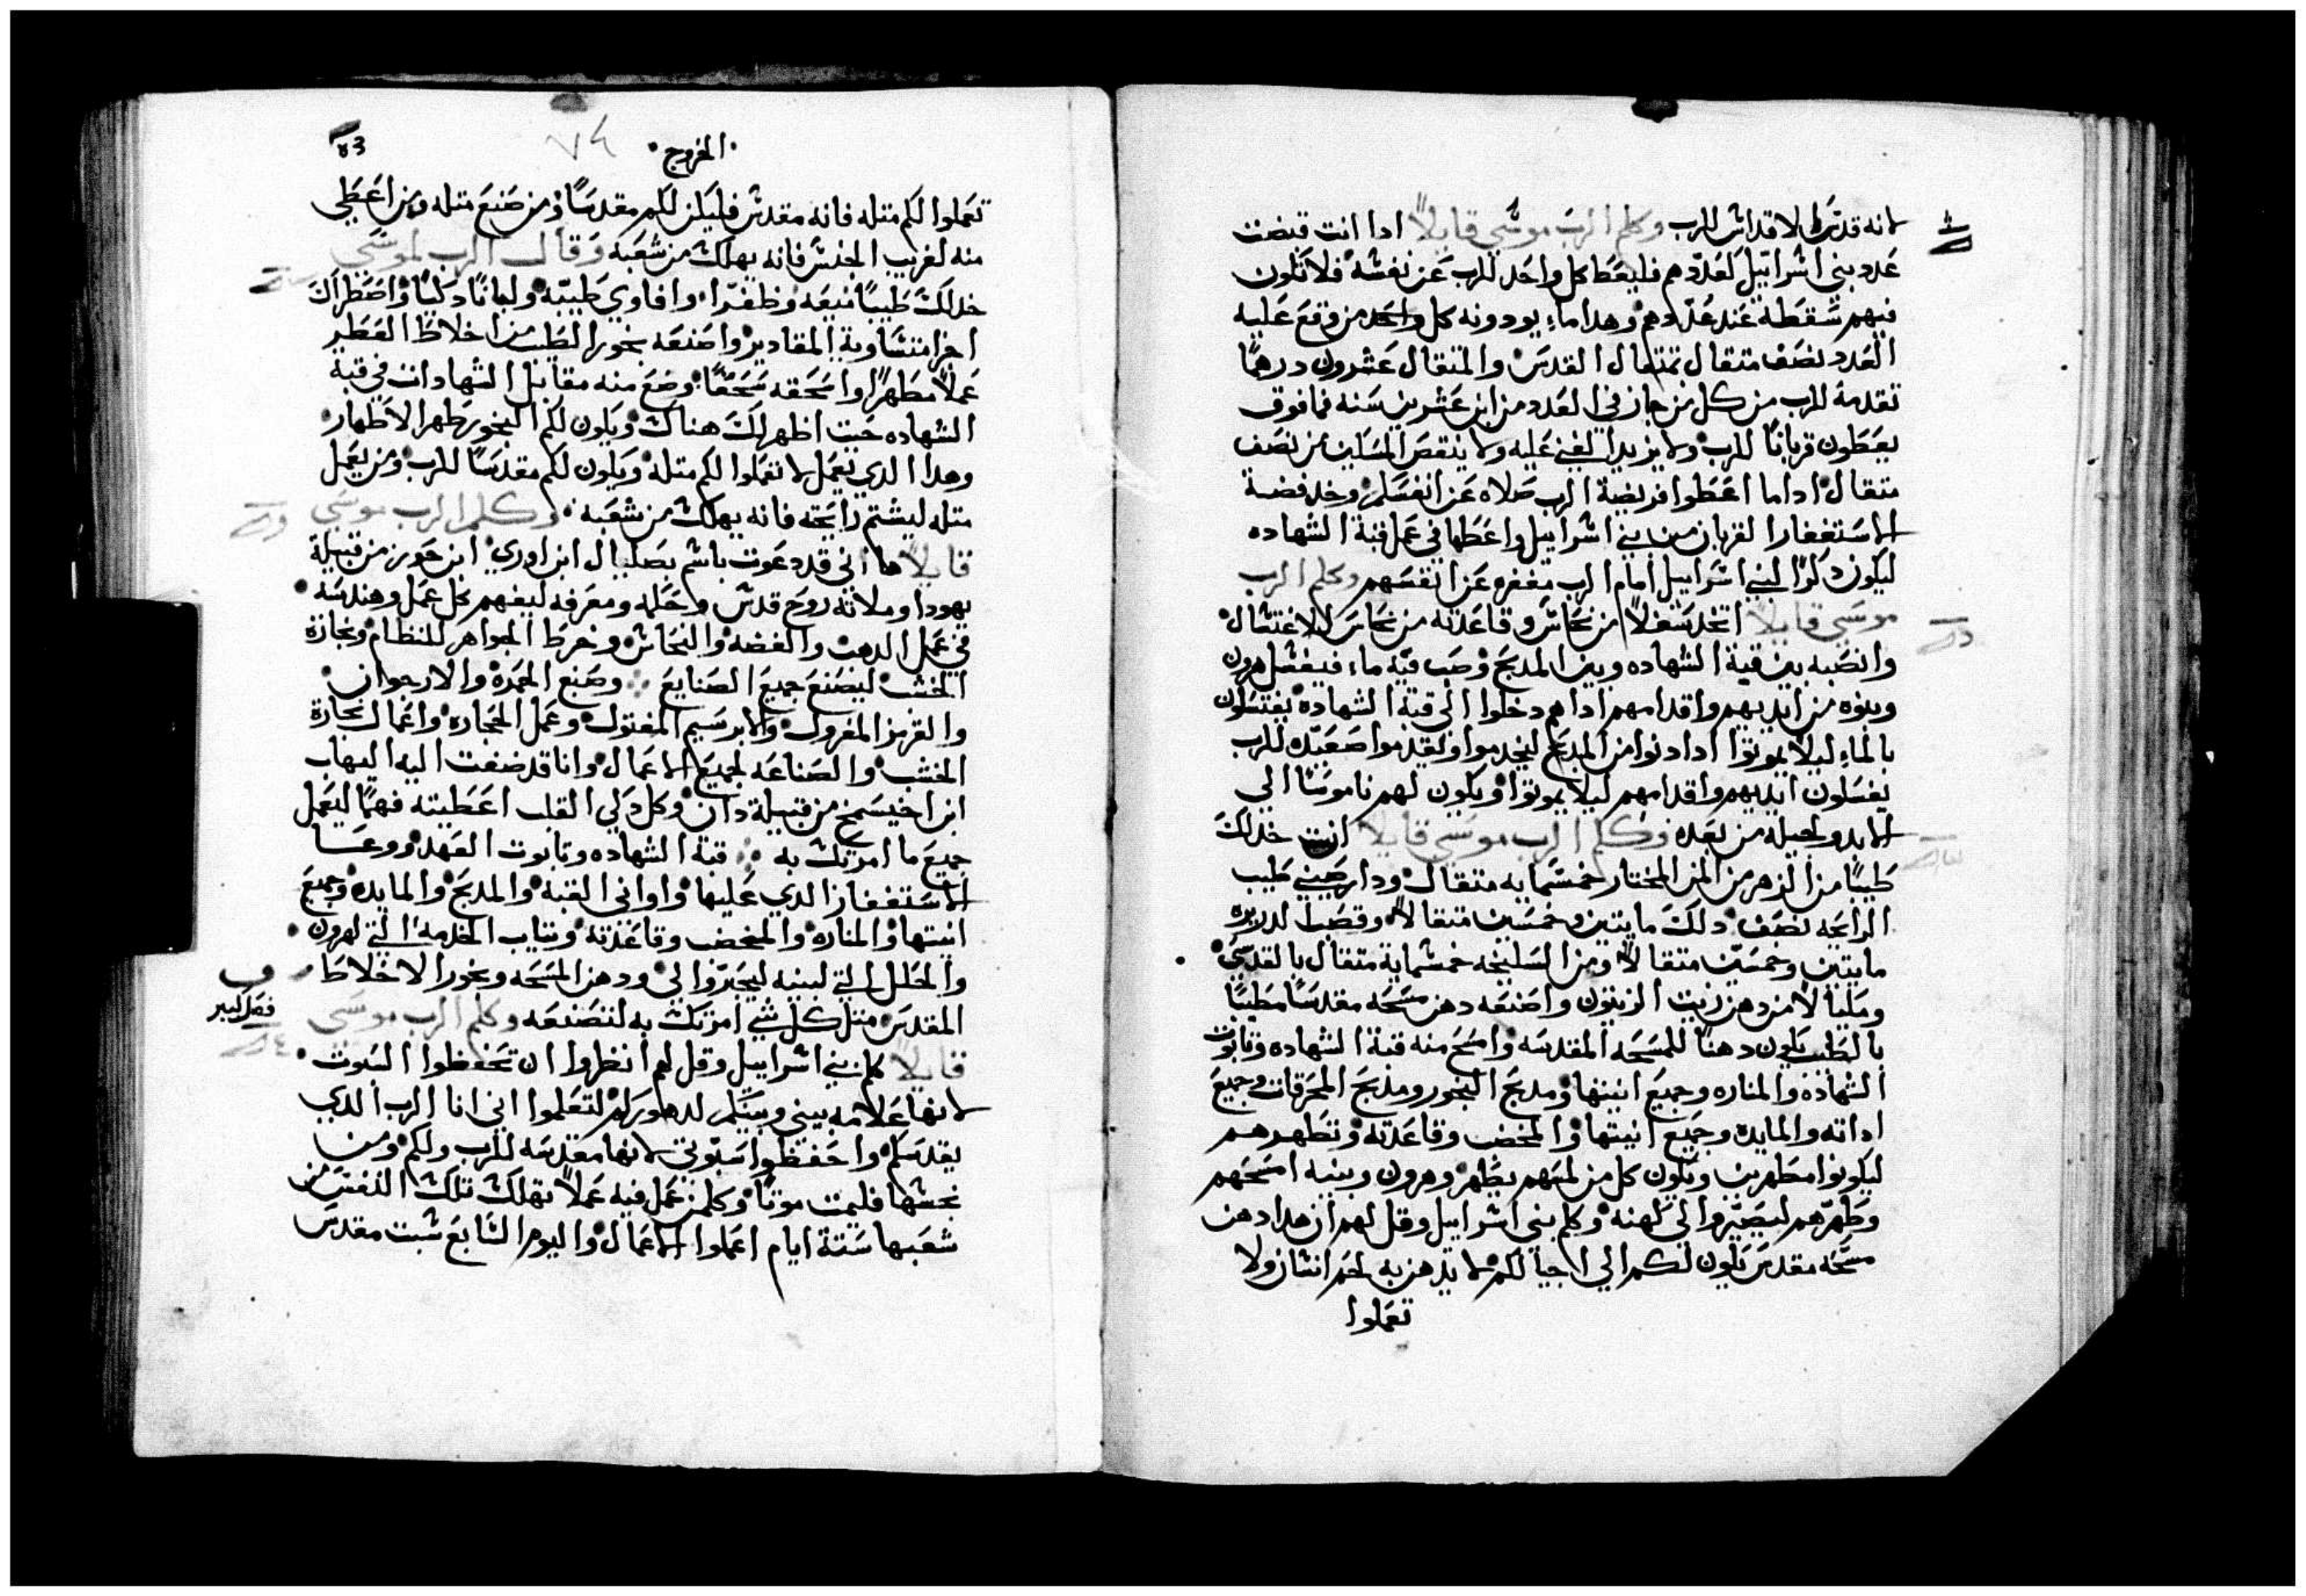 لانه قدس الاقداس للرب وكلم الرب موسي قايلاً ادا انت قبضت
عدد بني اسراييل لعددهم فليعط كل واحد للرب عن نفسه فلا تكون
فيهم سقطه عند عددهم وهدا ما يودونه كل واحد من وقع عليه
العدد نصف متقال بمتقال القدس والمتقال عشرون درهمًا
تقدمة للرب من كل من جاز في العدد من ابن عشرين سنه فما فوق
يعطون قربانًا للرب ولا يزيد الغني عليه ولا ينقص المسكين من نصف
متقال ادا ما اعطوا فريضة الرب صلاه عن انفسكم وخد فضة
الاستغفار القربان من بني اسراييل واعطها في عمل قبة الشهاده
ليكون دكرًا لبني اسراييل امام الرب تغفره عن انفسهم وكلم الرب
موسي قايلاً اتخد سغلاً من نحاس وقاعدته من نحاس للاغتسال
وانصبه بين قبة الشهاده وبين المدبح وصب فيه ماء فيغسل هرون
وبنوه من ايديهم واقدامهم ادا هم دخلوا الي قبة الشهاده يغتسلون
بالماء ليلا يموتوا ادا دنوا من المدبح ليخدموا وليقدموا صعيده للرب
يغسلون ايديهم واقدامهم ليلا يموتوا ويكون لهم ناموسًا الي
الابد ولجيله من بعده وكلم الرب موسي قايلاً انت خد لك
طيبًا من الزهر من المر المختار خمسمايه متقال ودارصيني طيب
الرايحه نصف دلك مايتين وخمسين متقالاً وقصب الدريره
مايتين وخمسين متقالاً ومن السليخه خمسماية متقال بالقدسي
ومكيالا من دهن زيت الزيتون واصنعه دهن مسحه مقدسًا مطيبًا
بالطيب يكون دهنًا للمسحه المقدسه وامسح منه قبة الشهاده وتابوت
الشهاده والمناره وجميع انيتها ومدبح البخور ومدبح المحرقات وجميع
اداته والمايده وجميع انيتها والمخضب وقاعدته وتطهرهم
ليكونوا مطهرين ويكون كل من لمسهم يطهر وهرون وبنيه امسحهم
وطهرهم ليصيروا لي كهنه وكلم بني اسراييل وقل لهم ان هدا دهن
مسحه مقدس يكون لكم الي اجيالكم لا يدهن به لحم انسان ولا
تعملوا
الخروج
٧٤
تعملوا لكم متله فانه مقدس فليكن لكم مقدسًا ومن صنع متله ومن اعطي
منه لغريب الجنس فانه يهلك من شعبه وقال الرب لموسي
خد لك طيبًا ميعه وظفرا وافاوي طيبه ولبانًا دكيًا واضطراك
اجزا متساوية المقادير واصنعه بخور الطيب من اخلاط العطر
عملاً مطهرًا واسحقه سحقًا وضع منه مقابل الشهادات في قبة
الشهاده حيت اظهر لك هناك ويكون لكم البخور طهر الاطهار
وهدا الدي يعمل لا تعملوا لكم متله ويكون لكم مقدسًا للرب ومن يعمل
متله ليشتم رايحته فانه يهلك من شعبه وكلم الرب موسي
قايلاً ها اني قد دعوت باسم بصليال ابن اوري ابن حور من قبيلة
يهودا وملاته روح قدس وحكمه ومعرفه ليفهم كل عمل وهندسه
في عمل الدهب والفضه والنحاس وخرط الجواهر للنظام ونجارة
الخشب ليصنع جميع الصنايع وصنع الحمره والارجوان
والقرمز المغزول والابرسيم المفتول وعمل الحجاره واعمال نجارة
الخشب والصناعه لجميع الاعمال وانا قد ضفت اليه اليهاب
ابن اخيسمخ من قبيلة دان وكل دكي القلب اعطيته فهمًا ليعمل
جميع ما امرتك به قبة الشهاده وتابوت العهد ووعا
الاستغفار الدي عليها واواني القبه والمدبح والمايده وجميع
انيتها والمناره والمخضب وقاعدته وتياب الخدمه التي لهرون
والحلل التي لبنيه ليجبروا لي ودهن المسحه وبخور الاخلاط
المقدس متل كل شي امرتك به لتصنعه وكلم الرب موسي
فصل كبير
قايلاً كلم بني اسراييل وقل لهم انظروا ان تحفظوا السبوت
لانها علامه بيني وبينكم لدهوركم لتعلموا اني انا الرب الدي
يقدسكم واحفظوا سبوتي لانها مقدسه للرب ولكم ومن
نجسها فليمت موتًا وكل من عمل فيه عملاً تهلك تلك النفس من
شعبها ستة ايام اعملوا الاعمال واليوم السابع سبت مقدس